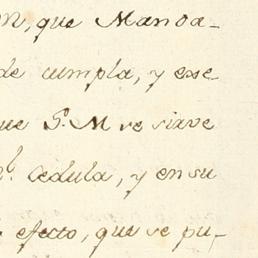 que Manda-
de cumpla, y exe-
que S. M se sirve
l. Cedula, y en su
efecto, que se pu-